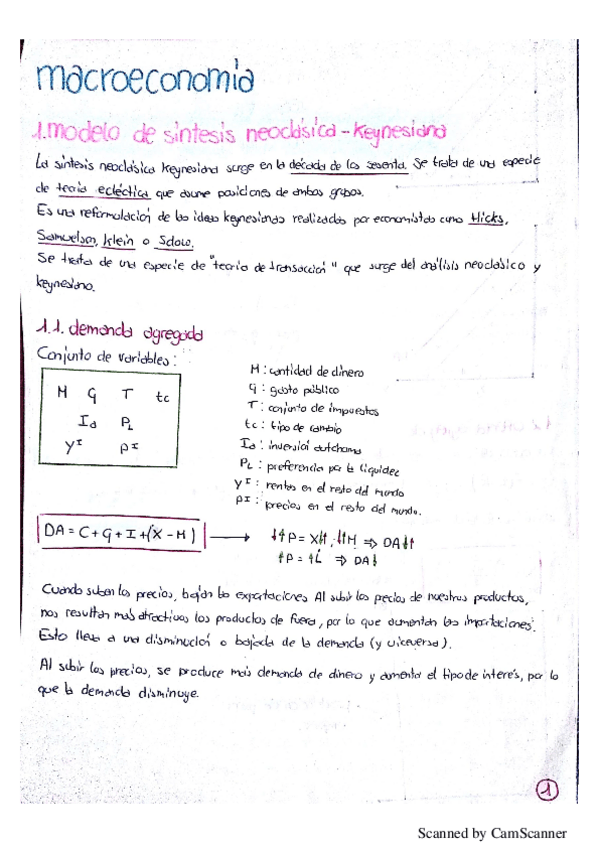 macroeconomia
1. modelo de sintesis neoclásica - Keynesiana
La sintesis neoclásica Keynesiana surge en la década de los sesenta. Se trata de una especie
de teoria ecléctica que asume posiciones de ambos grupos.
Es una reformulación de las ideas keynesianas realizadas por economistas como Hicks,
Samuelson, Klein o Solow.
Se trata de una especie de "teoria de transacción" que surge del análisis neoclásico y
keynesiano.
1.1. demanda agregada
Conjunto de variables:
M G T tc
Ia PL
Y^I P^I
M: cantidad de dinero
G: gasto público
T: conjunto de impuestos
tc: tipo de cambio
Ia: inversión autónoma
PL: preferencia por la liquidez
Y^I: rentas en el resto del mundo
P^I: precios en el resto del mundo.
DA = C + G + I + (X - M) → ↓↑P = X↓↑, ↓↑M ⇒ DA↓↑
↑P = ↑L ⇒ DA↓
Cuando suben los precios, bajan las exportaciones. Al subir los precios de nuestros productos,
nos resultan más atractivos los productos de fuera, por lo que aumentan las importaciones.
Esto lleva a una disminución o bajada de la demanda (y viceversa).
Al subir los precios, se produce más demanda de dinero y aumenta el tipo de interés, por lo
que la demanda disminuye.
1
Scanned by CamScanner